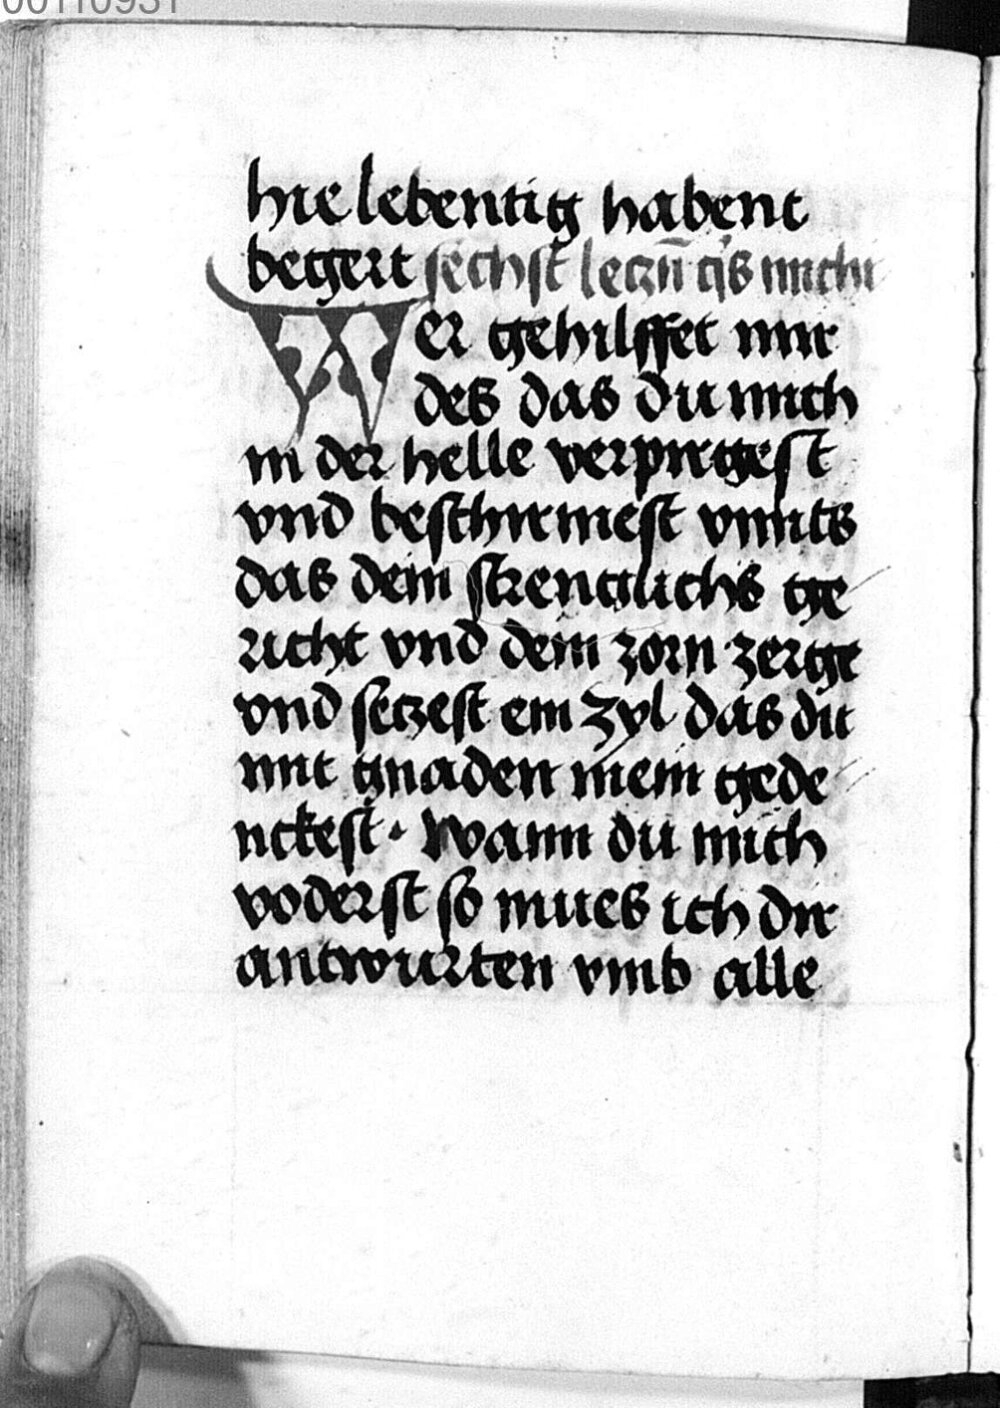 00110931
hie lebentig habent
begert sechst leczū q's michi
Wer gehilffet mir
des das du mich
in der helle verpirgest
vnd beschirmest vnnts
das dein strenglichs ge
richt vnd dein zorn zerge
vnd seczest ein zyl das du
mit gnaden mein gede
nckest · Wann du mich
voderst so mues ich dir
antwurten vmb alle